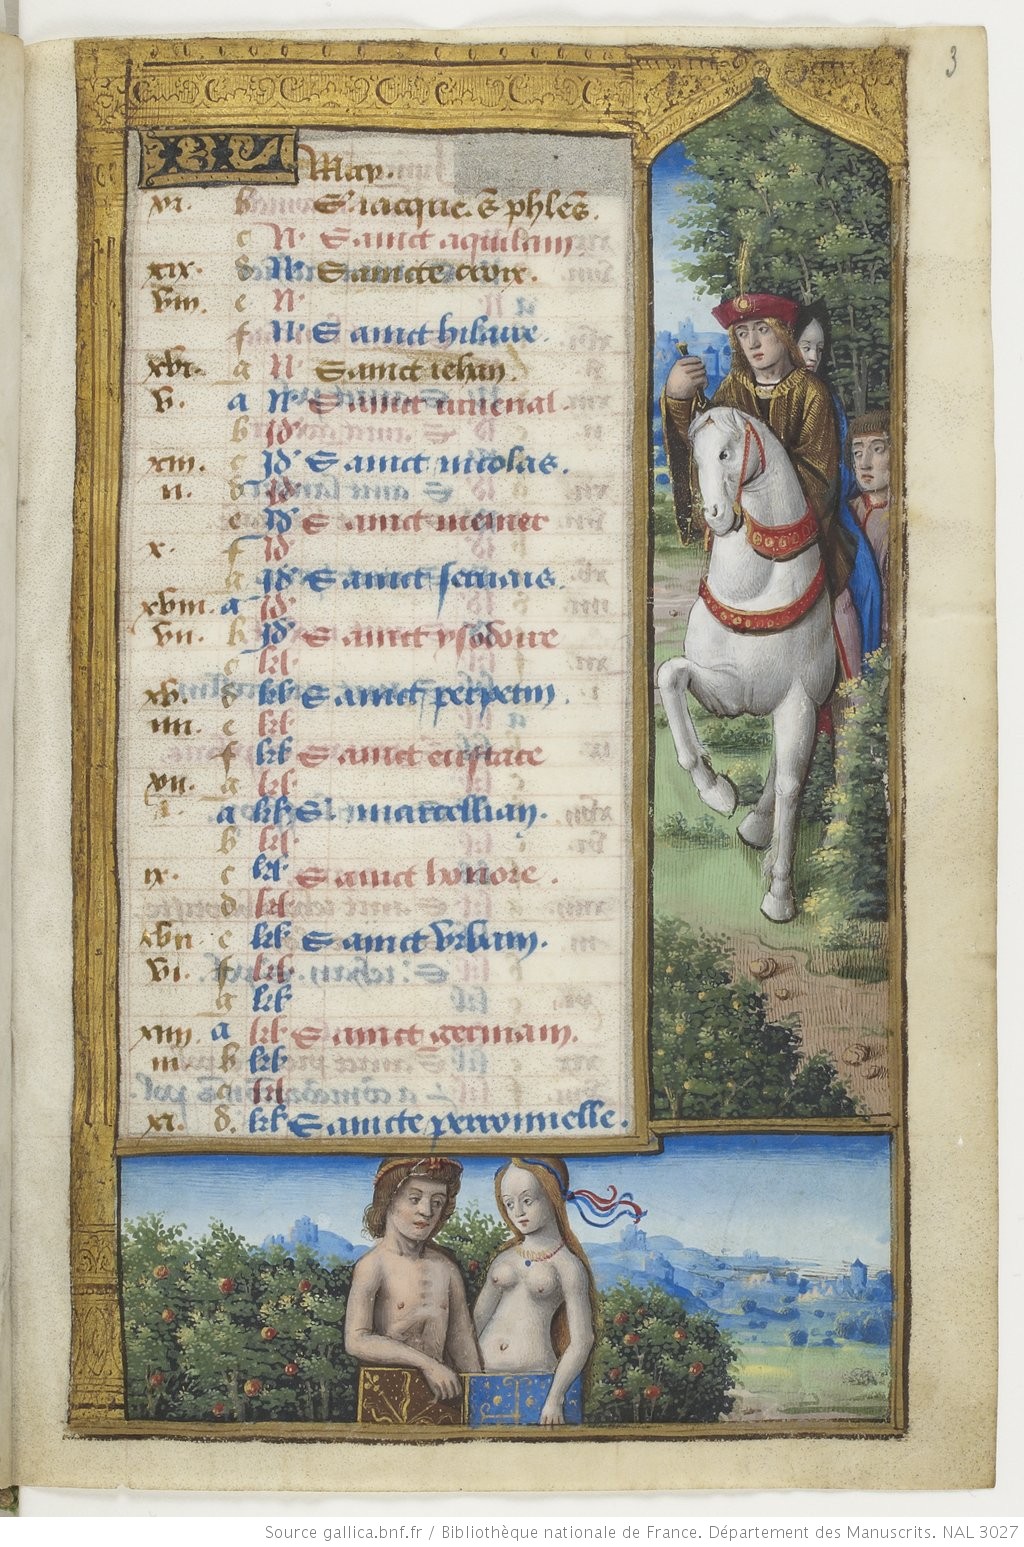 3
KL May.
vi. b S. iacque. S. phles.
c N. Sainct aquilain
xix. d N. Saincte croix.
viii. e N.
f N. Sainct hilaire.
xvi. g N. Sainct iehan.
v. a N. Sainct iuuenal.
b Id.
xiii. c Id. Sainct nicolas.
ii. d Id.
e Id. Sainct memer
x. f Id
g Id. Sainct seruais.
xviii. a Id.
vii. b Id. Sainct ysodoire
c kl.
xv. d kl. Sainct perpetin.
iiii. e kl.
f kl. Sainct eustace
xii. g kl.
i. a kl. S. marcellian.
b kl.
ix. c kl. Sainct honore.
d kl.
xvii. e kl. Sainct vrbain.
vi. f kl.
g kl.
xiiii. a kl. Sainct germain.
iii. b kl.
c kl.
xi. d. kl. Saincte perronnelle.
Source gallica.bnf.fr / Bibliothèque nationale de France. Département des Manuscrits. NAL 3027